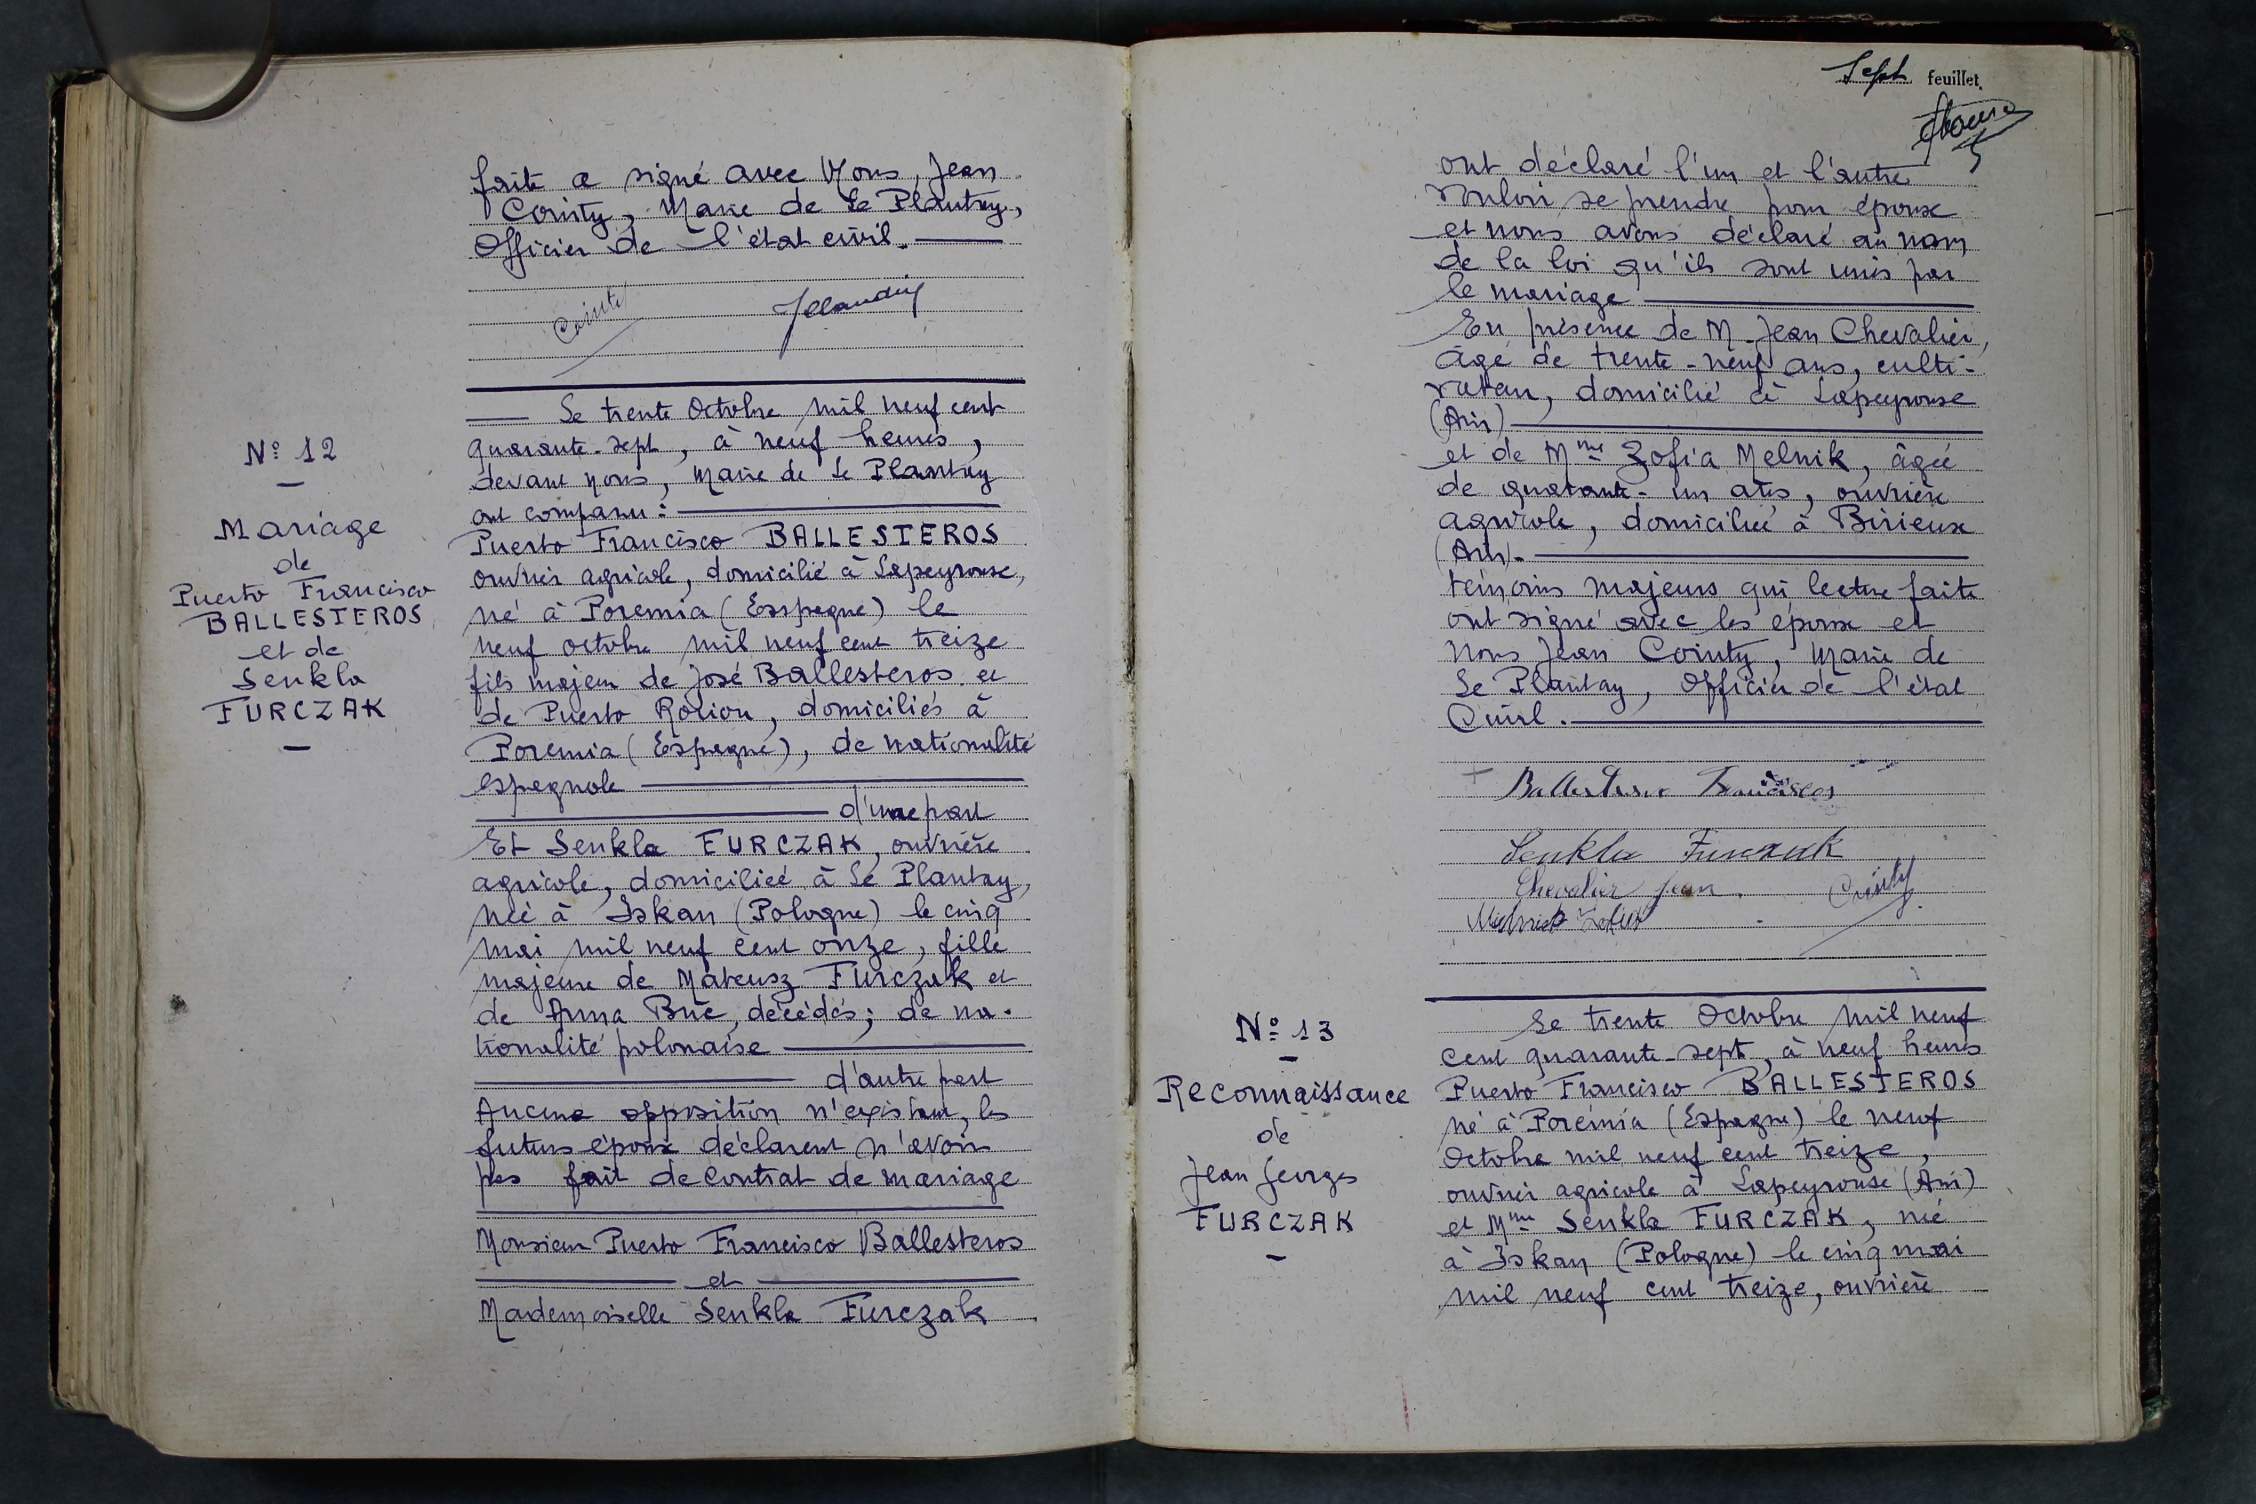 faite a signé avec Nous, Jean
Cointy, Maire de Le Plantay,
Officier de l'état civil.
Cointy
N° 12
Mariage
de
Puerto Francisco
BALLESTEROS
et de
Senkla
FURCZAK
Le trente Octobre mil neuf cent
quarante-sept, à neuf heures,
devant nous, Maire de Le Plantay
ont comparu :
Puerto Francisco BALLESTEROS
ouvrier agricole, domicilié à Lapeyrouse,
né à Poremia (Espagne) le
neuf octobre mil neuf cent treize
fils majeur de José Ballesteros et
de Puerto Rotion, domiciliés à
Poremia (Espagne), de nationalité
espagnole
d'une part
Et Senkla FURCZAK, ouvrière
agricole, domiciliée à Le Plantay,
née à Iskan (Pologne) le cinq
mai mil neuf cent onze, fille
majeure de Mateusz Furczak et
de Anna Buc, décédés; de na-
tionalité polonaise
d'autre part
Aucune opposition n'existant, les
futurs époux déclarent n'avoir
pas fait de contrat de mariage
Monsieur Puerto Francisco Ballesteros
et
Mademoiselle Senkla Furczak
Sept feuillet.
ont déclaré l'un et l'autre
vouloir se prendre pour époux
et nous avons déclaré au nom
de la loi qu'ils sont unis par
le mariage
En présence de M. Jean Chevalier,
âgé de trente-neuf ans, culti-
vateur, domicilié à Lapeyrouse
(Ain)
et de Mme Zofia Melnik, âgée
de quarante-un ans, ouvrière
agricole, domiciliée à Birieux
(Ain).
témoins majeurs qui lecture faite
ont signé avec les époux et
Nous Jean Cointy, Maire de
Le Plantay, Officier de l'état
Civil.
Ballesteros Francisco
Senkla Furczak
Chevalier Jean. Cointy
N° 13
Reconnaissance
de
Jean Georges
FURCZAK
Le trente Octobre mil neuf
cent quarante-sept, à neuf heures
Puerto Francisco BALLESTEROS
né à Poremia (Espagne) le neuf
Octobre mil neuf cent treize,
ouvrier agricole à Lapeyrouse (Ain)
et Mme Senkla FURCZAK, née
à Iskan (Pologne) le cinq mai
mil neuf cent treize, ouvrière